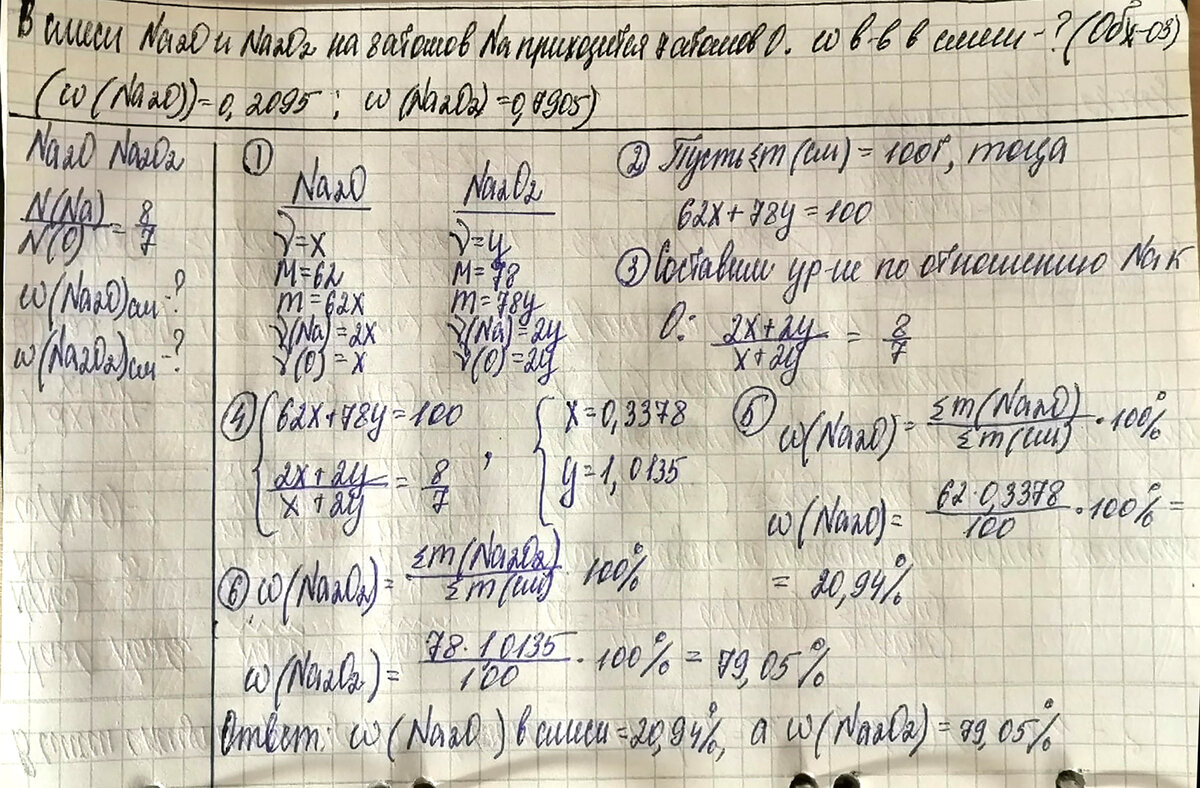 В смеси Na2O и Na2O2 на 8 атомов Na приходится 7 атомов O. ω в-в в смеси -? (Обх-03)
(ω(Na2O)) = 0,2095; ω(Na2O2) = 0,7905)
Na2O Na2O2
N(Na)/N(O) = 8/7
ω(Na2O)см -?
ω(Na2O2)см -?
①
Na2O
ν = x
M = 62
m = 62x
ν(Na) = 2x
ν(O) = x
Na2O2
ν = y
M = 78
m = 78y
ν(Na) = 2y
ν(O) = 2y
② Пусть Σm(см) = 100г, тогда
62x + 78y = 100
③ Составим ур-ие по отношению Na к
O: (2x + 2y)/(x + 2y) = 8/7
④ { 62x + 78y = 100
(2x + 2y)/(x + 2y) = 8/7 ,
{ x = 0,3378
y = 1,0135
⑤ ω(Na2O) = Σm(Na2O)/Σm(см) · 100%
ω(Na2O) = 62 · 0,3378/100 · 100% =
= 20,94%
⑥ ω(Na2O2) = Σm(Na2O2)/Σm(см) · 100%
ω(Na2O2) = 78 · 1 0135/100 · 100% = 79,05%
Ответ: ω(Na2O) в смеси = 20,94%, а ω(Na2O2) = 79,05%